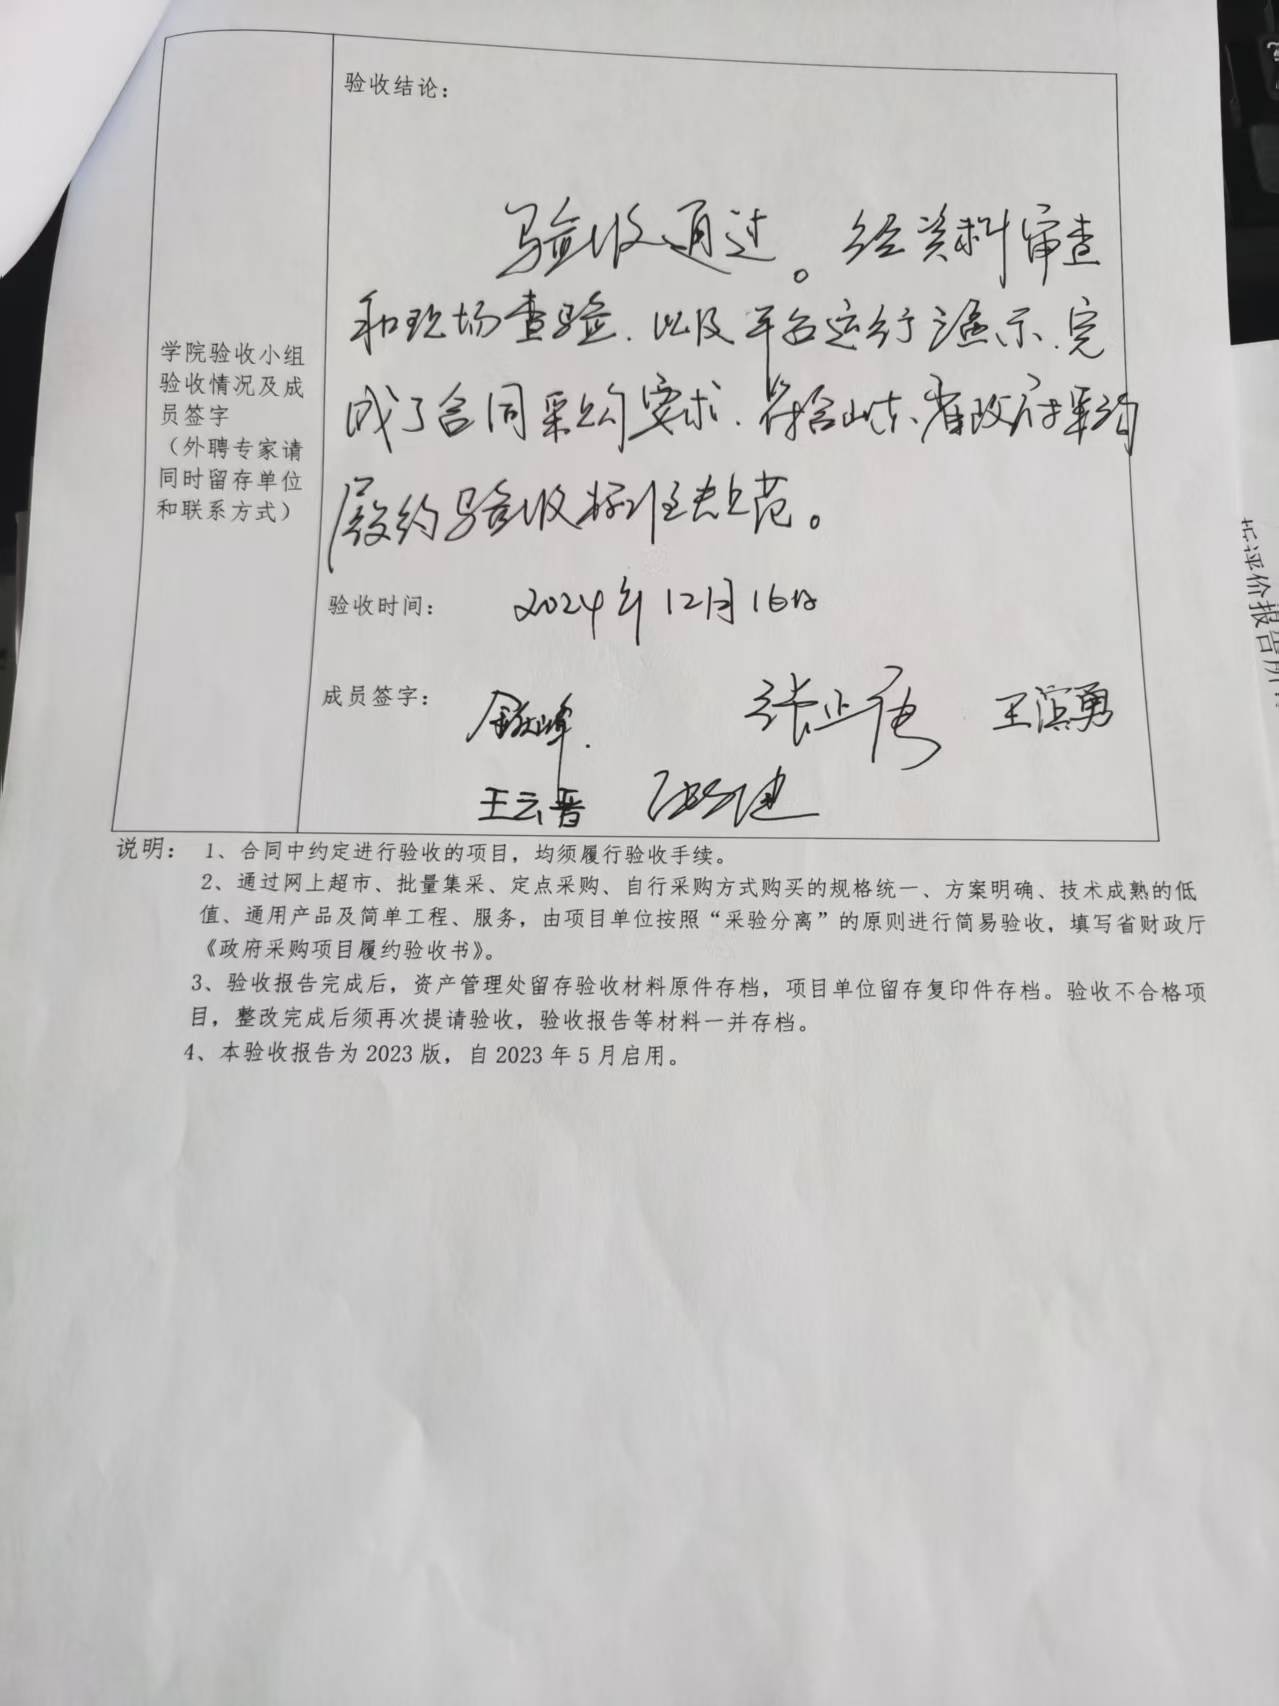 验收结论：
验收通过。经资料审查
和现场查验、以及平台运行演示、完
成了合同采购要求、符合山东省政府采购
履约验收标准规范。
学院验收小组
验收情况及成
员签字
（外聘专家请
同时留存单位
和联系方式）
验收时间： 2024年12月16日
成员签字：
王滨勇
王云晋
说明： 1、合同中约定进行验收的项目，均须履行验收手续。
2、通过网上超市、批量集采、定点采购、自行采购方式购买的规格统一、方案明确、技术成熟的低
值、通用产品及简单工程、服务，由项目单位按照“采验分离”的原则进行简易验收，填写省财政厅
《政府采购项目履约验收书》。
3、验收报告完成后，资产管理处留存验收材料原件存档，项目单位留存复印件存档。验收不合格项
目，整改完成后须再次提请验收，验收报告等材料一并存档。
4、本验收报告为 2023 版，自 2023 年 5 月启用。
评价报告所